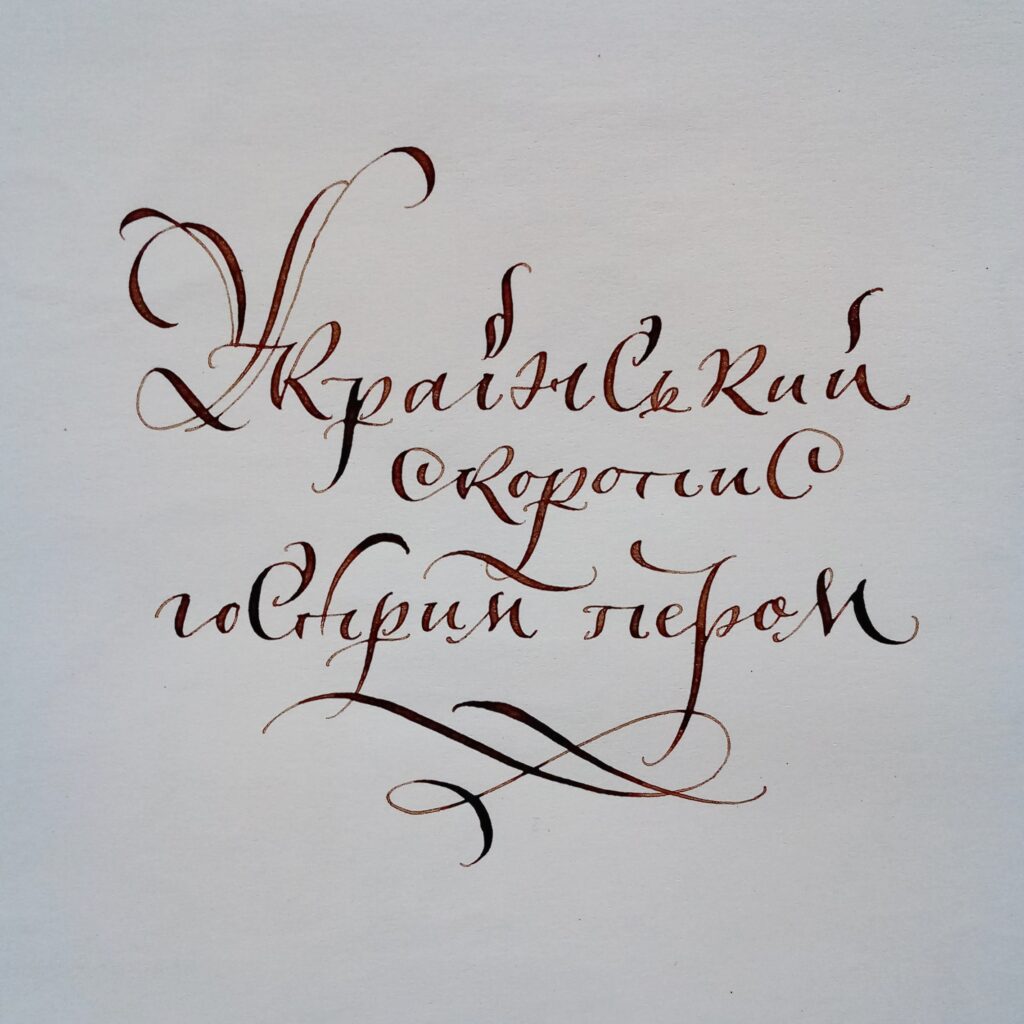 Український
скоропис
гострим пером